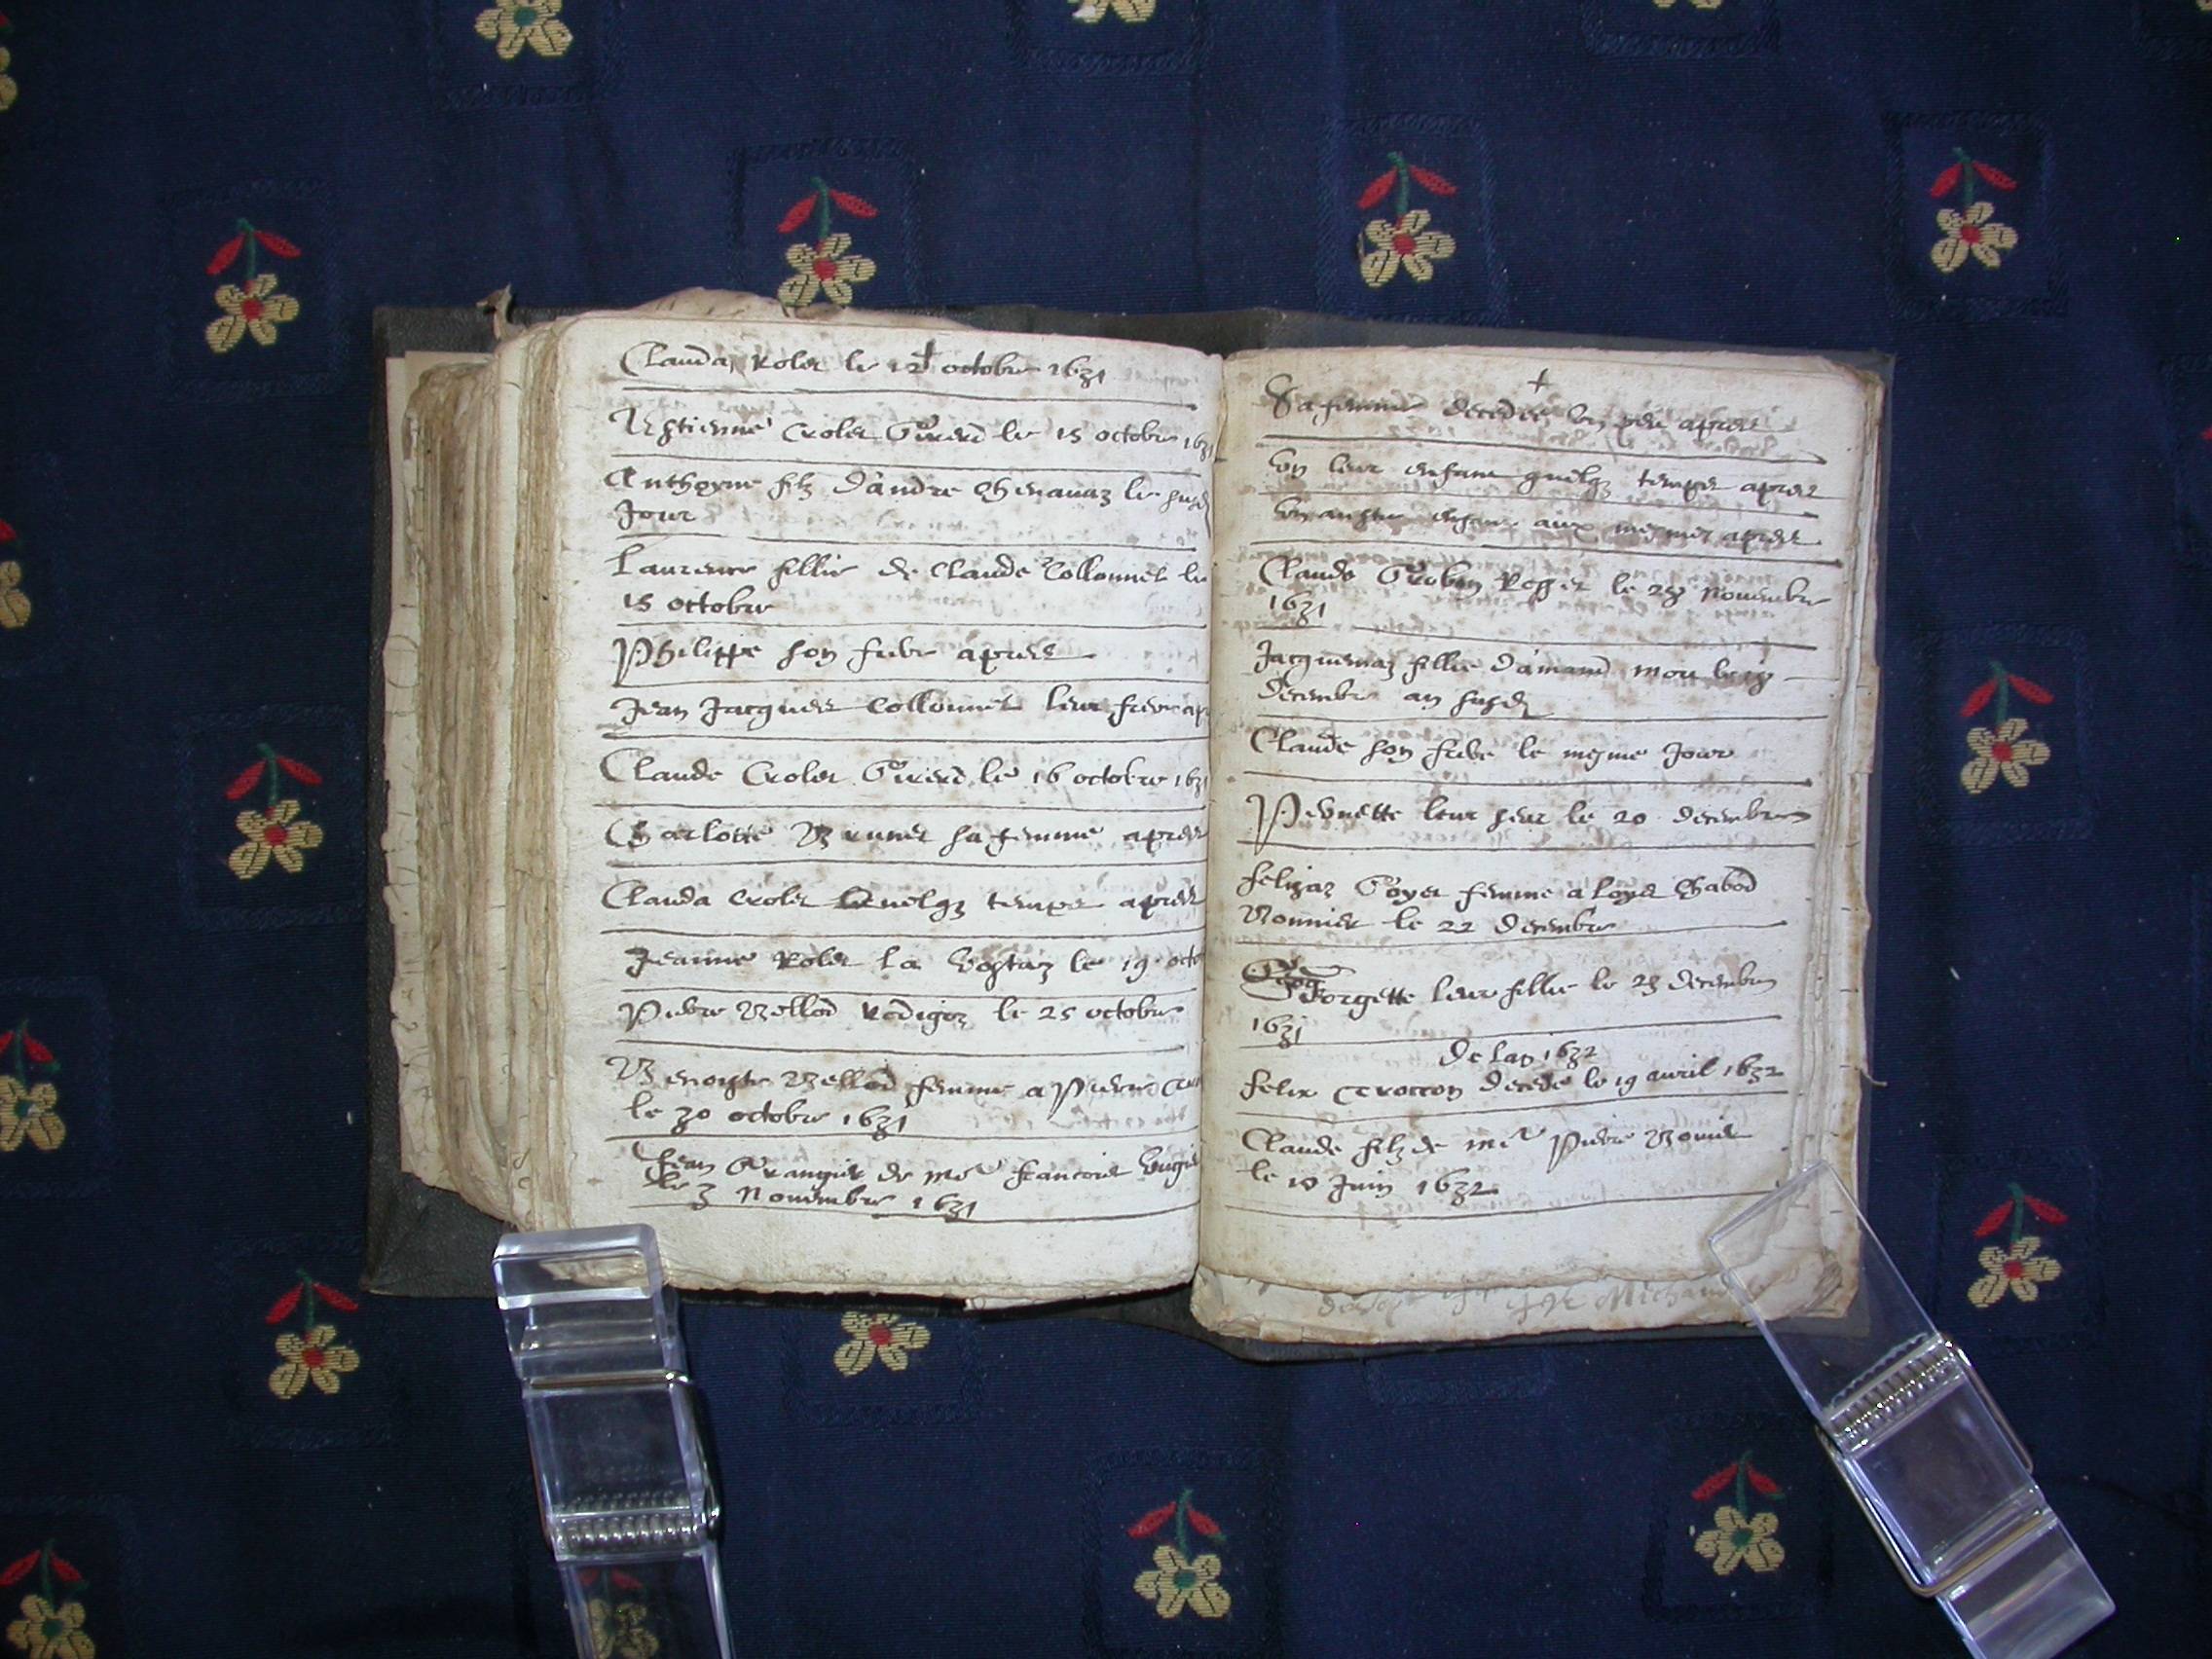 Clauda Rolet le 12 octobre 1631
Estienne Crolet Girerd le 15 octobre 1631
Anthoyne filz d'andre Chenavaz le susd
Jour
Laurence fillie de Claude Collonnet le
15 octobre
Philippe son frere apres
Jean Jacques Collonnet leur frere apr
Claude Crolet Girerd le 16 octobre 1631
Charlotte Brunet sa femme apres
Clauda Crolet quelqz temps apres
Jeanne Rolet la le 19 octo
Pierre Vellod le 25 octobre
Benoyte Vellod femme a Pierre
le 30 octobre 1631
Jean Grangier de me francois
le 3 Novembre 1631
+
Sa femme decedee un peu apres
Un leur enfant quelqz temps apres
Un aultre enfant aux mesmes apres
Claude Grobon le 28 Novembre
1631
Jacquemaz fillie d'amand le 18
decembre an susd
Claude son frere le mesme Jour
Pernette leur seur le 20 decembre
felizaz Goyet femme a Loys Chabod
le 22 decembre
Georgette leur fillie le 28 decembre
1631
De lan 1632
felix Croccon decede le 19 avril 1632
Claude filz de me Pierre
le 10 Juin 1632
Michaud